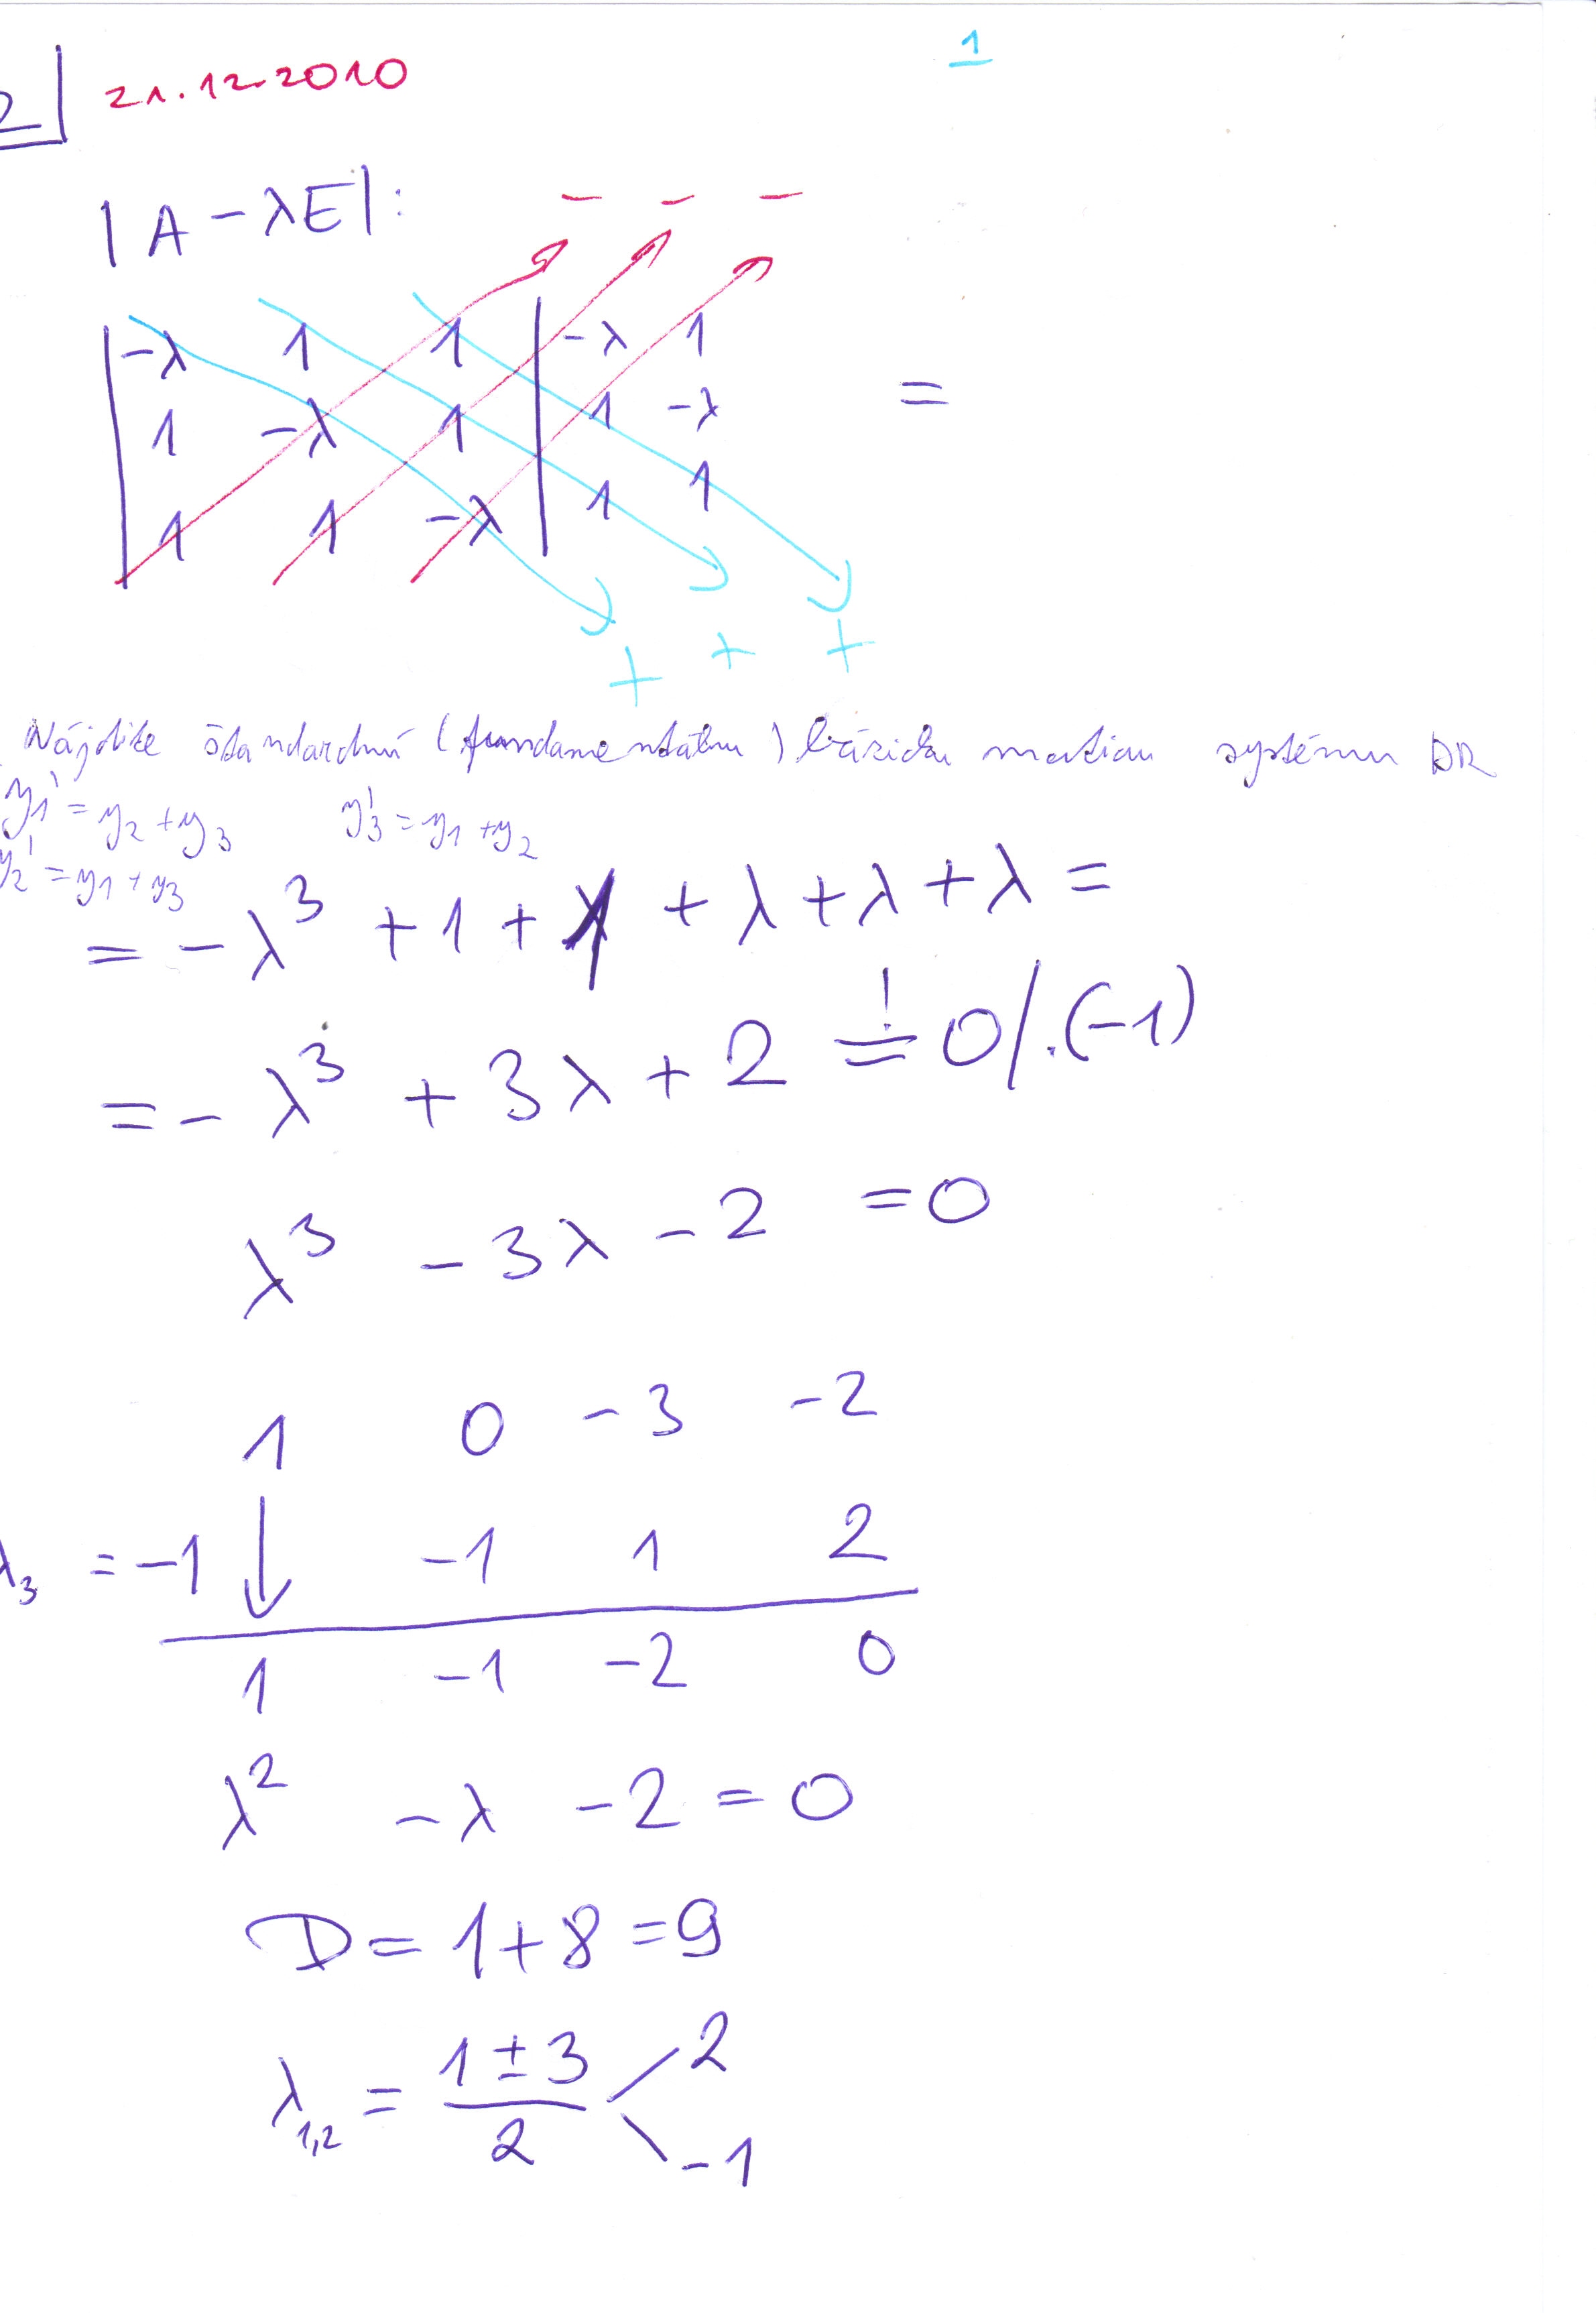 2 21.12.2010 1
|A - λE|:
- - -
-λ 1 1 | -λ 1
1 -λ 1 | 1 -λ =
1 1 -λ | 1 1
+ + +
Nájdite štandardnú (fundamentálnu) bázickú maticu systému DR
y1' = y2 + y3 y3' = y1 + y2
y2' = y1 + y3
= - λ³ + 1 + 1 + λ + λ + λ =
= - λ³ + 3λ + 2 =! 0 /.(-1)
λ³ - 3λ - 2 = 0
1 0 -3 -2
λ3 = -1 ↓ -1 1 2
1 -1 -2 0
λ² - λ - 2 = 0
D = 1 + 8 = 9
λ1,2 = (1 ± 3)/2 2
-1